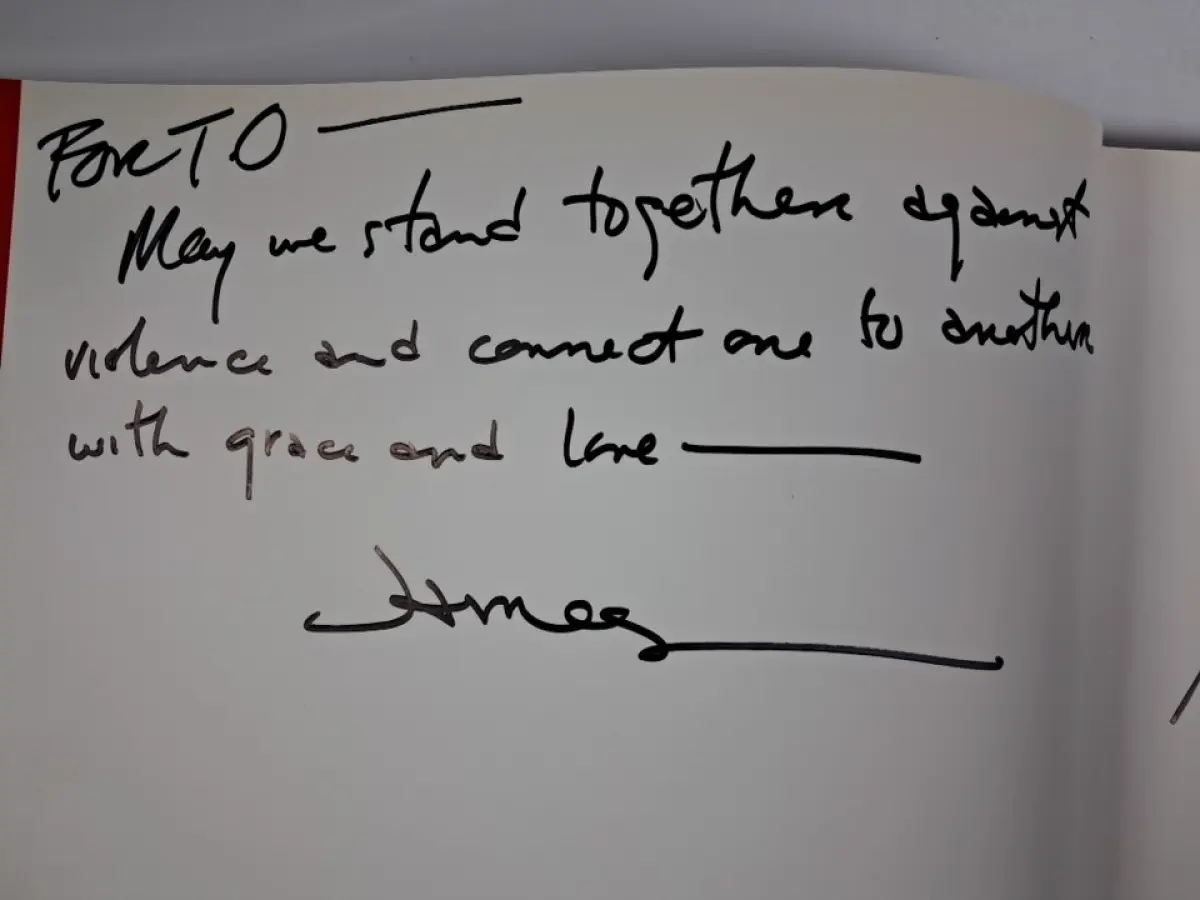 For T.O —
May we stand together against
violence and connect one to another
with grace and love —